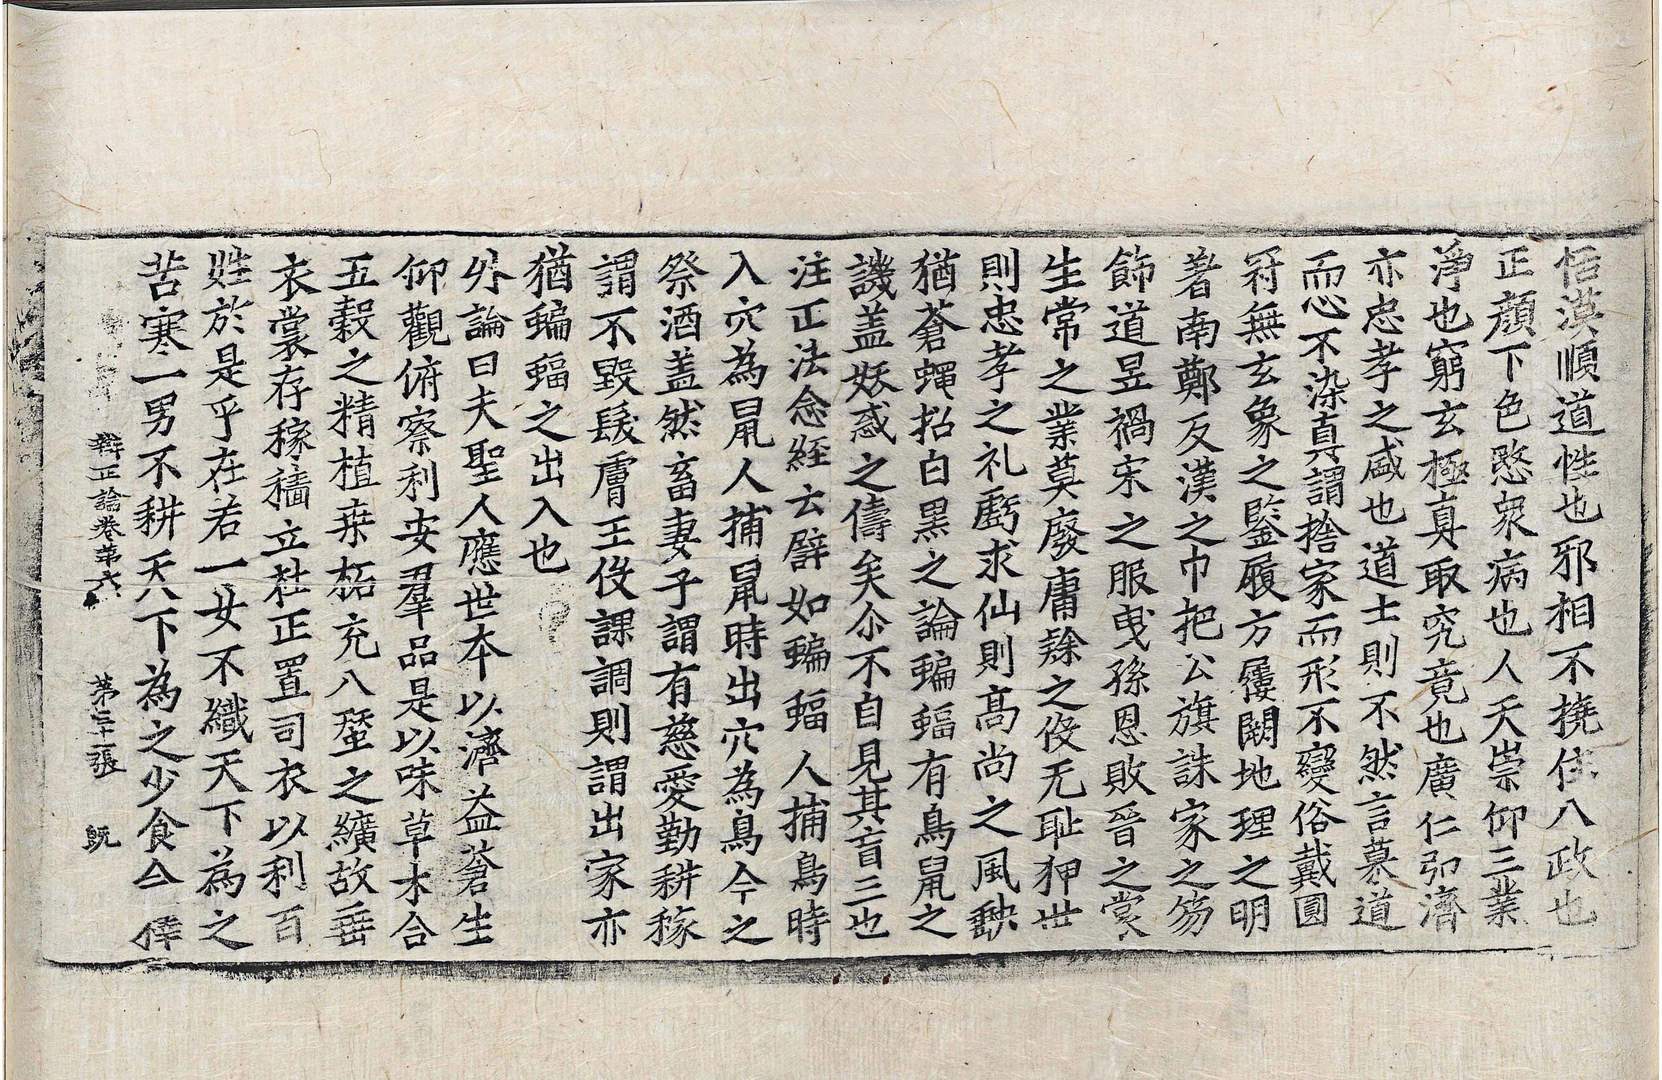 恬漠順道性也邪相不撓住八政也
正顔下色愍衆病也人天崇仰三業
淨也窮玄極真取究竟也廣仁弘濟
亦忠孝之盛也道士則不然言慕道
而心不染真謂捨家而形不變俗戴圓
冠無玄象之鑒履方屨闕地理之明
著南鄭反漢之巾把公旗誅家之笏
飾道昱禍宋之服曳孫恩敗晉之裳
生常之業莫廢庸赊之役无恥狎世
則忠孝之礼虧求仙則高尚之風缺
猶蒼蠅招白黒之論蝙蝠有鳥鼠之
譏盖妖惑之儔矣尒不自見其盲三也
注正法念經云譬如蝙蝠人捕鳥時
入穴為鼠人捕鼠時出穴為鳥今之
祭酒盖然畜妻子謂有慈愛勤耕稼
謂不毀髮膚王役課調則謂出家亦
猶蝙蝠之出入也
外論曰夫聖人應世本以濟益蒼生
仰觀俯察利安羣品是以味草木合
五穀之精植桒柘充八蚕之纊故垂
衣裳存稼穡立社正置司衣以利百
姓於是乎在若一女不織天下為之
苦寒一男不耕天下為之少食今 僧
辯正論卷第六 第三十二張 既